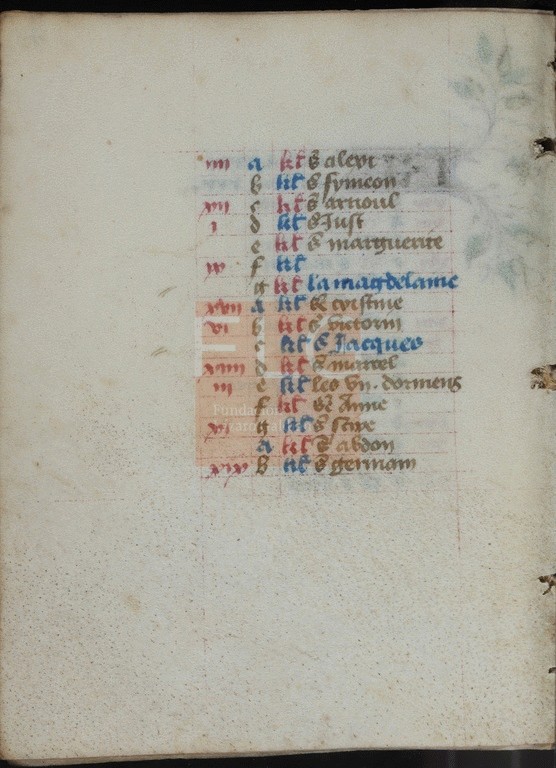 iiii a kl s alexi
b kl s symeon
xii c kl s arnoul
i d kl s Just
e kl s marguerite
ix f kl
g kl la magdelaine
xvii a kl s cristine
vi b kl s victorin
c kl s Jacques
xiiii d kl s marcel
iii e kl les vii. dormens
f kl se Anne
xi g kl s
a kl s abdon
xix b kl s germain
Fundación